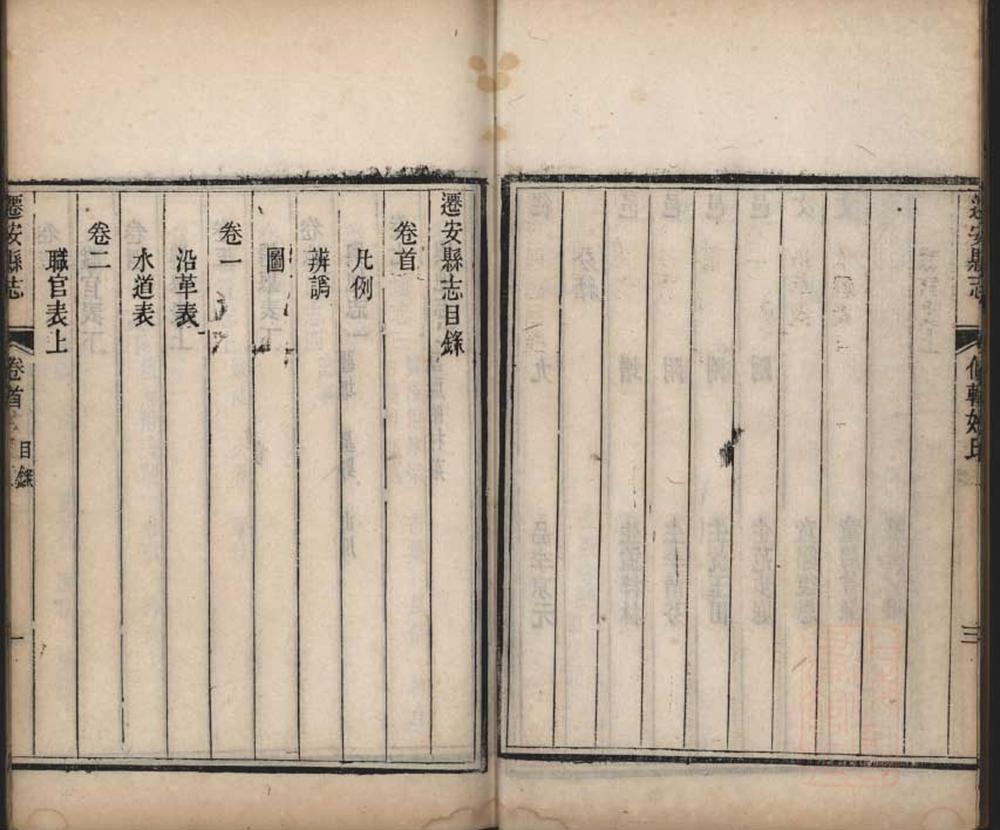 遷安縣志
三
遷安縣志目錄
卷首
凡例
辨譌
圖
卷一
沿革表
水道表
卷二
職官表上
遷安縣志
卷首
目錄
一